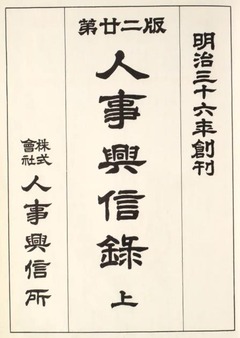 明治三十六年創刊
第廿二版
人事興信錄 上
株式會社 人事興信所